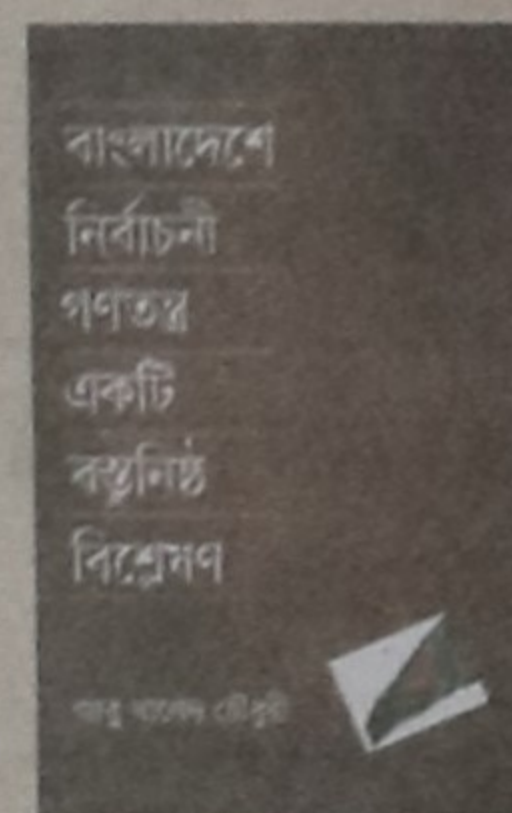 বাংলাদেশে
নির্বাচনী
গণতন্ত্র
একটি
বস্তুনিষ্ঠ
বিশ্লেষণ
আবু সালেহ চৌধুরী